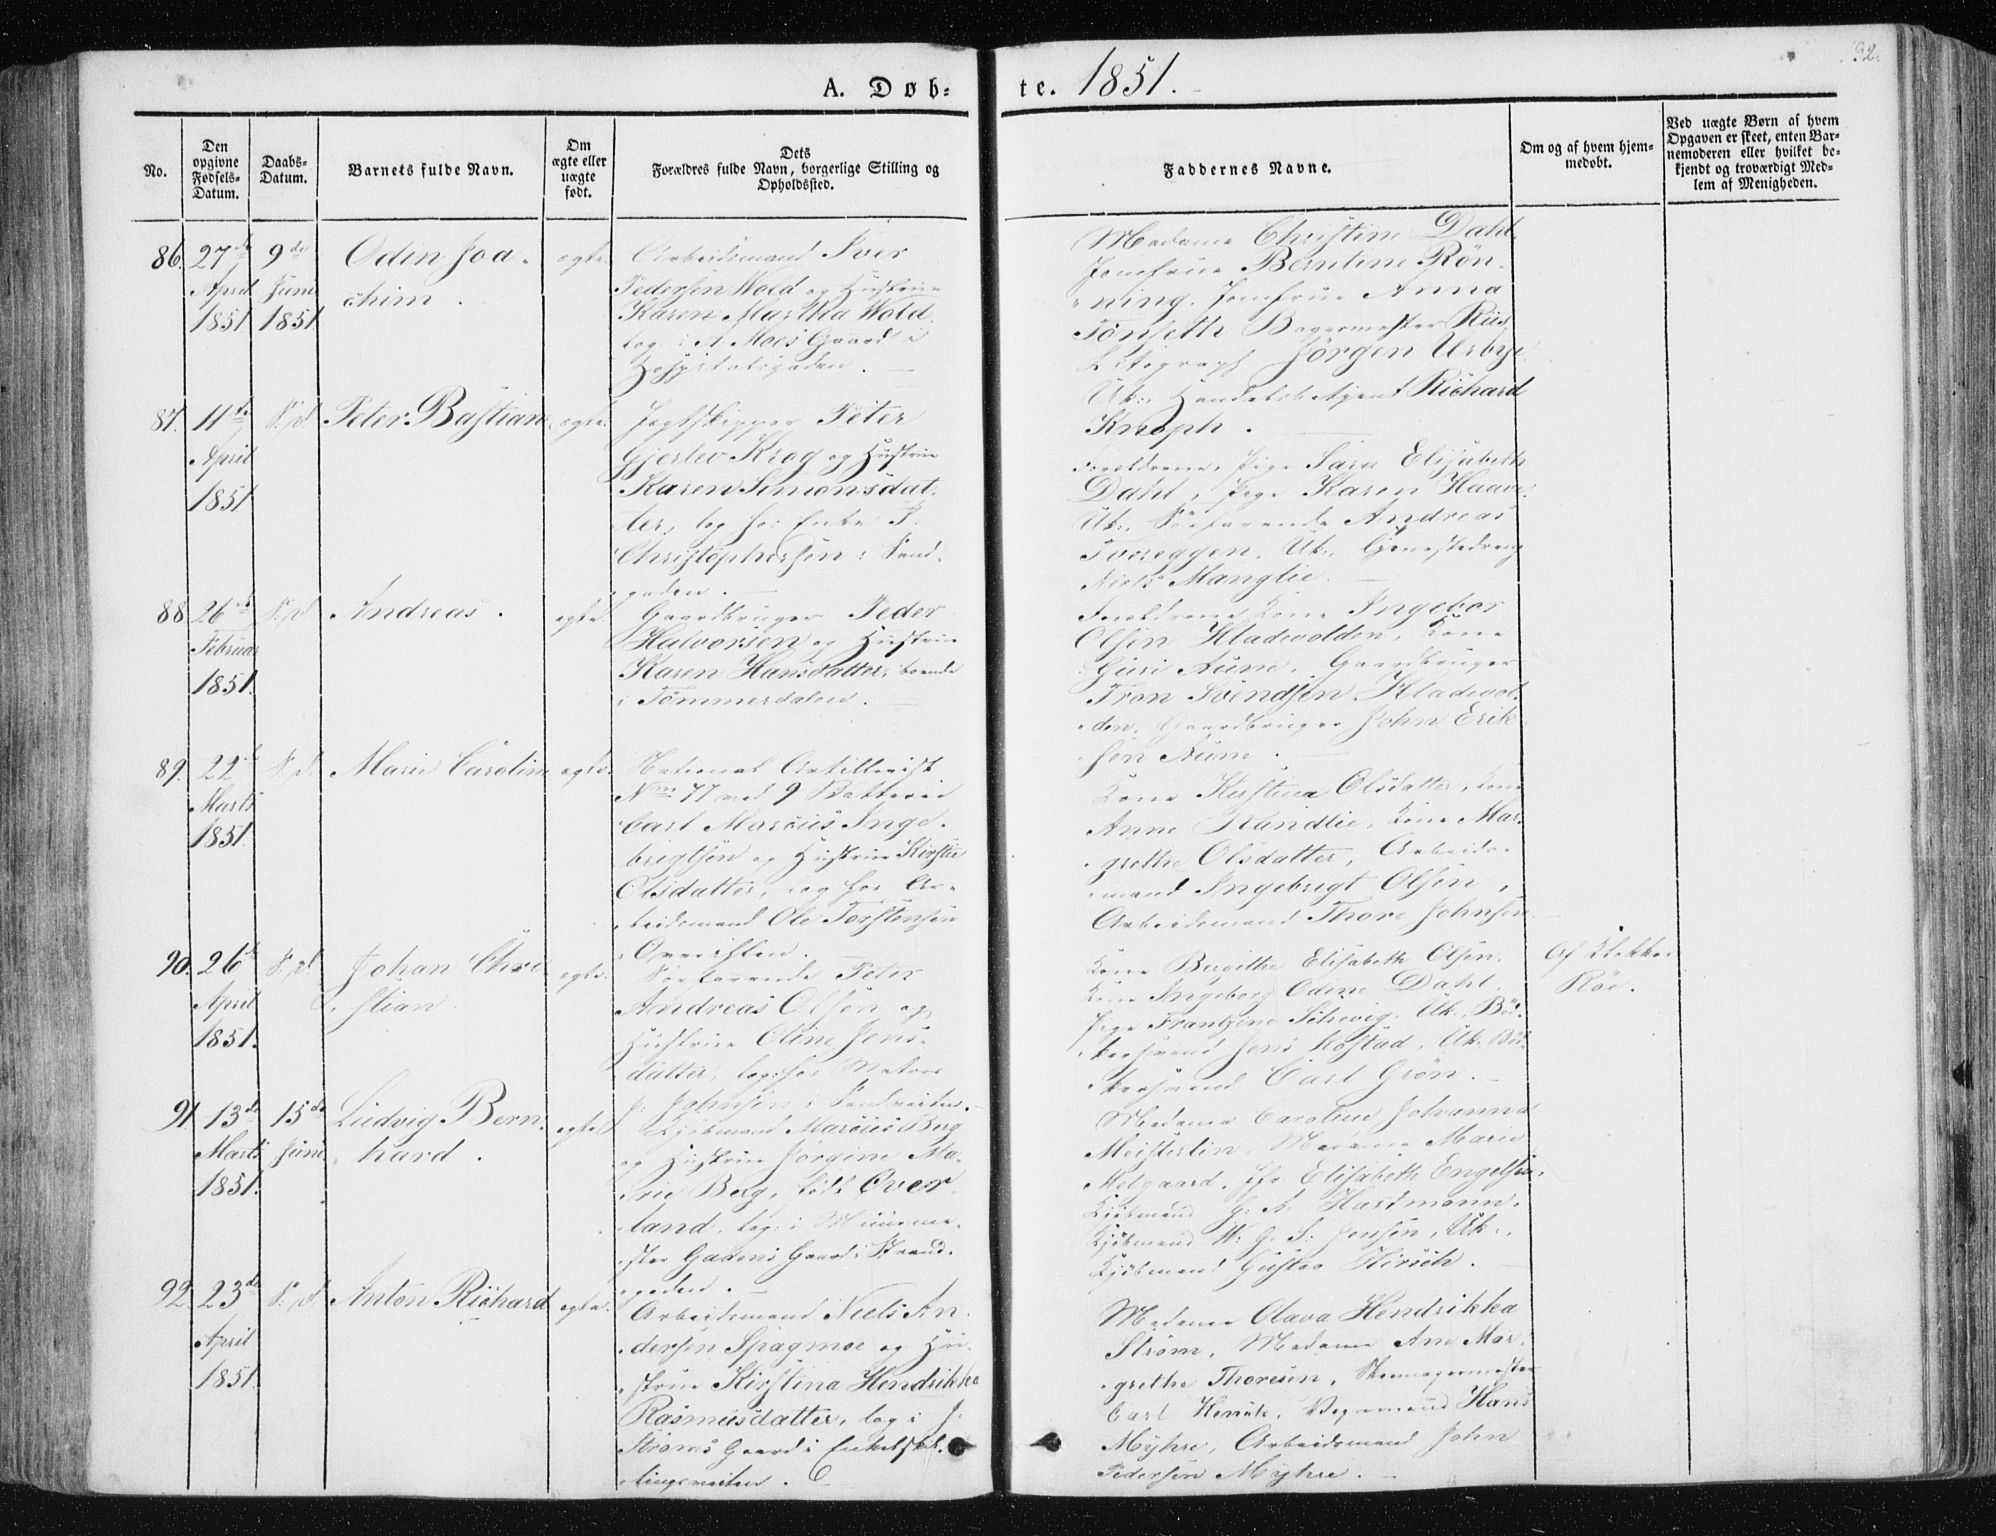 A. Døb-
te. 1851.
132.
No.
Den
opgivne
Fødsels-
Datum.
Daabs-
Datum.
Barnets fulde Navn.
Om
ægte eller
uægte
født.
Dets
Forældres fulde Navn, borgerlige Stilling og
Opholdssted.
Faddernes Navne.
Om og af hvem hjem-
medøbt.
Ved uægte Børn af hvem
Opgaven er skeet, enten Bar-
nemoderen eller hvilket be-
kjendt og troværdigt Med-
lem af Menigheden.
86. 27de April 1851
9de Juni 1851
Odin Joa-
chim.
ægte.
Arbeidsmand Iver
Pedersen Wold og Hustrue
Karen Martha Wold.
log. i A. Moes Gaard i
Hospitalsgaden.
Madame Christine Dahl,
Jomfrue Berntine Røn-
ning, Jomfrue Anna
Tønseth Bagermester Riis,
Litograph Jørgen Urbye
Uk: Handelsbetjent Richard
Knoph.
87. 11te April 1851
S: d.
Peter Bastian
ægte.
Jagtskipper Peter
Gjerlev Krog og Hustrue
Karen Simonsdat-
ter, log ho: Enke P:
Christophersen i Sand-
gaden.
Forældrene, Pige Sara Elisabeth
Dahl, Pige Karen Haave
Uk: Søefarende Andreas
Tvereggen, Uk:
Niels Manglie.
88. 26de Februar 1851.
S: d.
Andreas.
ægte.
Gaardbruger Peder
Halvorsen og Hustrue
Karen Hansdatter, boende
i Tömmerdalen.
Forældrene Kone Ingebor
Olsen Hladevolden, Kone
Guri Aune, Gaardbruger
Tron Svendsen Hladevol-
den, Gaardbruger John Erik-
sen Aune.
89. 22de Marts 1851.
S: d.
Marie Caroline
ægte.
National Artillerist
No 77 ved 9 Batterie
Carl Marcus Inge-
brigtsen og Hustrue Kirstie
Olsdatter, log hos Ar-
beidsmand Ole Torstensen
Kone Kirstina Olsdatter, Kone
Anne Kandlie, Kone Mar-
grethe Olsdatter, Arbeids-
mand Ingebrigt Olsen,
Arbeidsmand Thore Johnsen
90. 26de April 1851.
S: d.
Johan Chri-
stian
ægte.
Søefarende Peter
Andreas Olsen og
Hustrue Oline Jens-
datter, log: hos Matros
J: Johnsen i Sandveiten.
Kone Bergitha Elisabeth Olsen.
Kone Ingeborg Odine Dahl,
Pige Frantzine Schevig, Uk: Bød-
kersvend Jens Røstad, Uk: Bød-
kersvend Carl Grøn.
Af Klokker
Röe.
91. 13de Marts 1851.
15de Juni.
Ludvig Bern-
hard.
ægte
Kjöbmand Marcus Berg
og Hustrue Jörgine Ma-
rie Berg, födt Over-
land, log: i Muurme-
ster Gadens Gaard i Strand-
gaden.
Madame Caroline Johanna
Meisterlin, Madame Marie
Melgaard, Jfr Elisabeth Engelsen,
Kjöbmand G: A. Hartmann,
Kjöbmand W: G: S: Jensen, Uk:,
Kjöbmand Gustav Hirsch.
92. 23de April 1851.
S: d.
Anton Richard
ægte.
Arbeidsmand Niels An-
dersen Spagmoe og Hu-
strue Kirstina Hendrikka
Rasmusdatter, log i J.
Ströms Gaard i Enkeltskil-
lingsveiten.
Madame Olava Hendrikka
Strøm, Madame Ane Mar-
grethe Thoresen, Skomagermester
Carl Henrik, Vognmand Hans
Myhre, Arbeidsmand John
Pedersen Myhre.